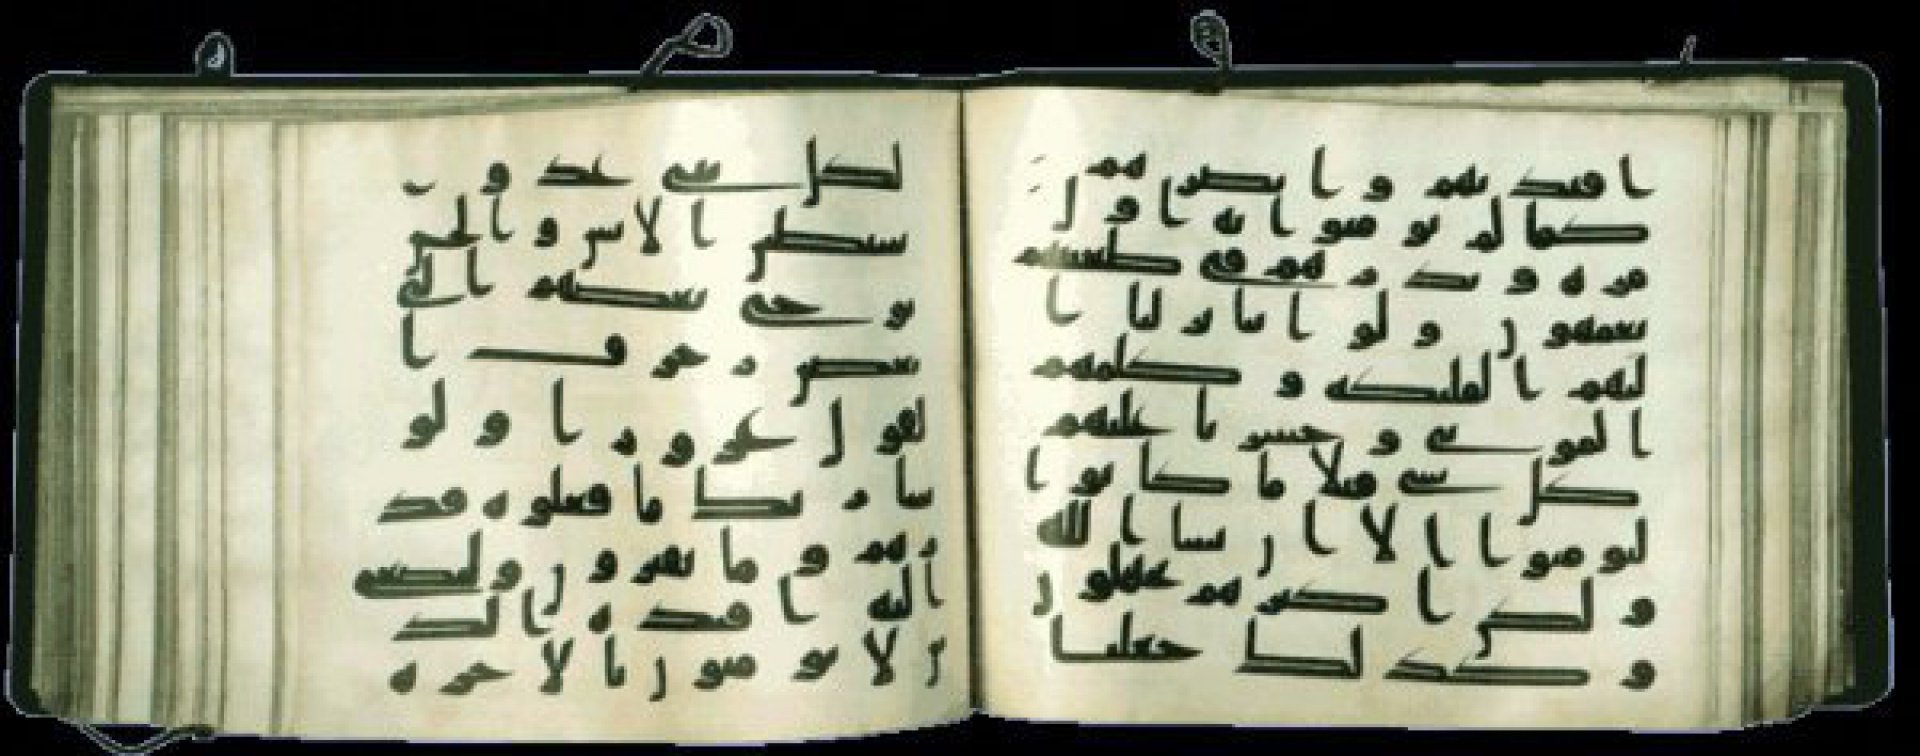 افدتهم و ابصر هم
كما لم يو منوا به او ل
مر ه و نذر هم في طغينهم
يعمهو ن و لو اننا نز لنا ا
ليهم ا لملئكه و كلمهم
ا لموتى و حشر نا عليهم
كل شى قبلا ما كا نو ا
ليو منو ا ا لا ا ن يشا ا لله
و لكن ا كثر هم يجهلو ن
و كذ لك جعلنا
لكل نبى عد و
شيطين ا لا نس و ا لجن
يو حى بعضهم ا لى
بعض ز خر ف ا
لقو ل غر و ر ا و لو
شا ر بك ما فعلو ه فذ
ر هم و ما يفتر و ن و لتصغى
ا ليه ا فئد ه ا لذ
ين لا يو منو ن با لا خر ه